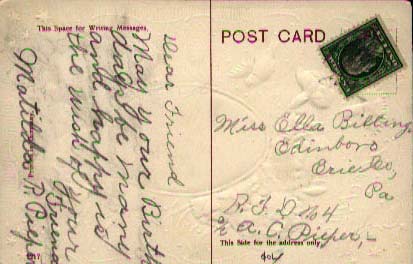 This Space for Writing Messages.
Dear Friend
May your Birth
days be many
and happy is
the wish of your
Friend
Matilda P. Pieper
POST CARD
Miss Ella Billing
Edinboro
Erie Co,
Pa
R. F. D No 4
℅ A. C. Pieper,
This Side for the address only